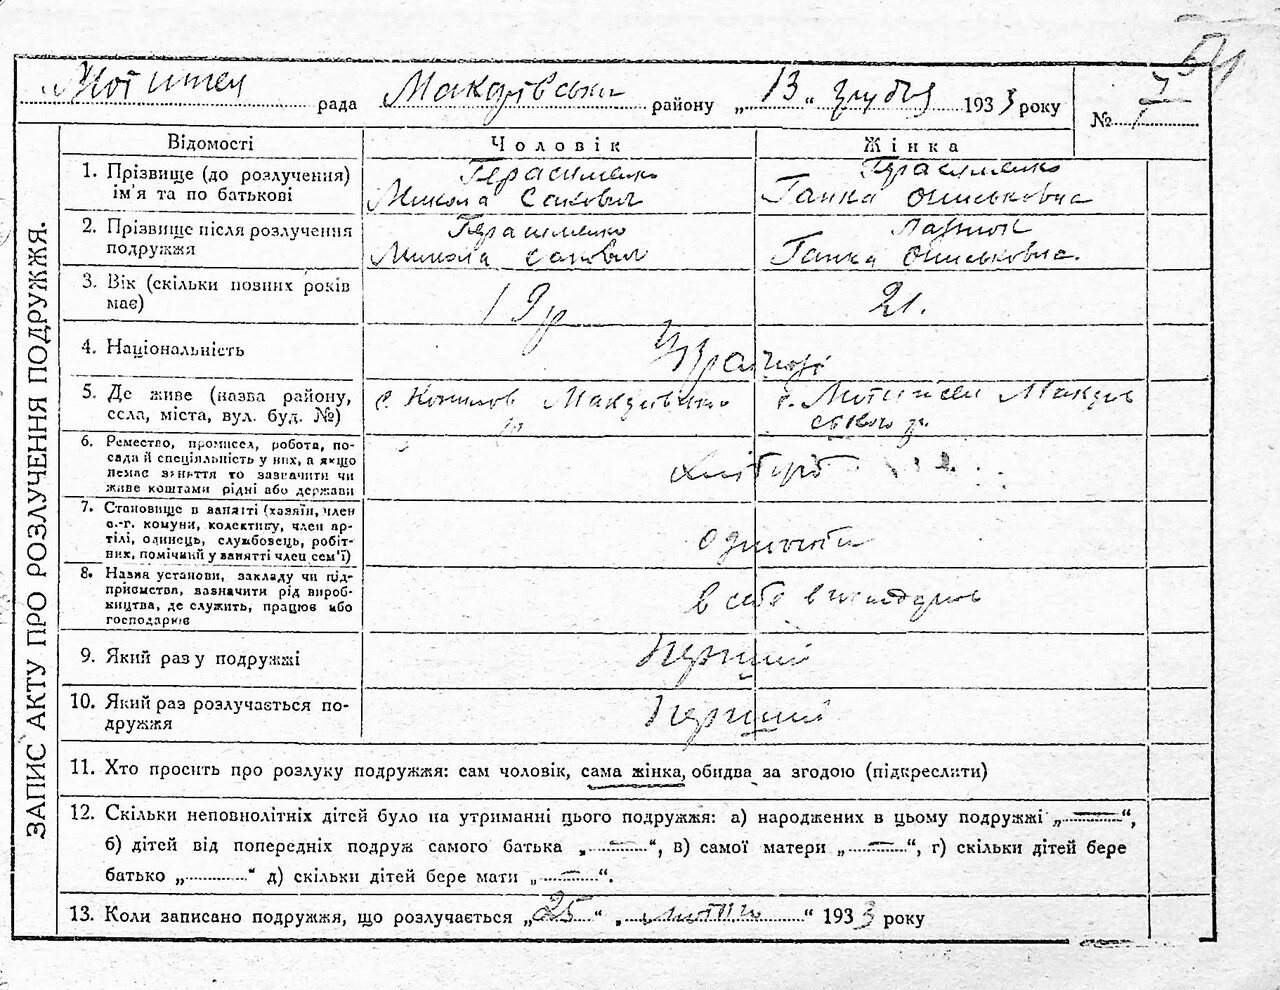 54
Мотижел рада Макарівськи району „ 13 “ грудня 1933 року
№ 7
ЗАПИС АКТУ ПРО РОЗЛУЧЕННЯ ПОДРУЖЖЯ.
Відомості Чоловік Жінка
1. Прізвище (до розлучення) Герасименко Герасименко
ім'я та по батькові Микола Савович Ганка Ониськовна
2. Прізвище після розлучення Герасименко
подружжя Микола Савович Ганка Ониськовна.
3. Вік (скільки повних років 19 р 21.
має)
4. Національність Українці
5. Де живе (назва району, с. Копилов Макарівський с. Мотижел Макарів
села, міста, вул. буд. №) ського р.
6. Ремество, промисел, робота, по-
сада й спеціяльність у них, а якщо хлібороб
немає заняття то зазначити чи
живе коштами рідні або держави
7. Становище в занятті (хазяїн, член
с.-г. комуни, колективу, член ар-
тілі, одинець, службовець, робіт-
ник, помічний у занятті член сем'ї)
8. Назва установи, закладу чи під-
приємства, зазначити рід вироб- в себе в господарстві
ництва, де служить, працює або
господарює
9. Який раз у подружжі Перший
10. Який раз розлучається по- Перший
дружжя
11. Хто просить про розлуку подружжя: сам чоловік, сама жінка, обидва за згодою (підкреслити)
12. Скільки неповнолітніх дітей було на утриманні цього подружжя: а) народжених в цьому подружжі „ — “,
б) дітей від попередніх подруж самого батька „ — “, в) самої матери „ — “, г) скільки дітей бере
батько „.........“ д) скільки дітей бере мати „ — “.
13. Коли записано подружжя, що розлучається „ 25 “ „ лютого “ 1933 року